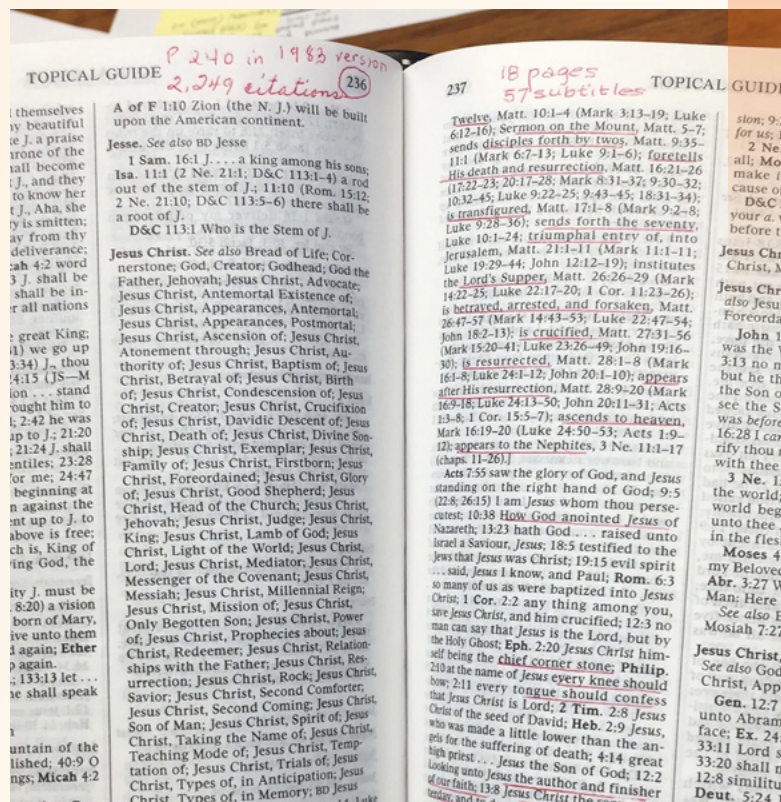 P 240 in 1983 version
2,249 citations
TOPICAL GUIDE
236
themselves
y beautiful
e J. a praise
rone of the
all become
J., and they
to know her
J., Aha, she
y is smitten;
ay from thy
deliverance;
ah 4:2 word
J. shall be
shall be in-
r all nations
great King;
1) we go up
3:34) J., thou
4:15 (JS—M
on . . . stand
ought him to
; 2:42 he was
up to J.; 21:20
; 21:24 J. shall
entiles; 23:28
or me; 24:47
beginning at
n against the
nt up to J. to
bove is free;
ch is, King of
ing God, the
ity J. must be
8:20) a vision
born of Mary,
ive unto them
d again; Ether
p again.
; 133:13 let . . .
e shall speak
untain of the
lished; 40:9 O
ngs; Micah 4:2
A of F 1:10 Zion (the N. J.) will be built
upon the American continent.
Jesse. See also BD Jesse
1 Sam. 16:1 J. . . . a king among his sons;
Isa. 11:1 (2 Ne. 21:1; D&C 113:1–4) a rod
out of the stem of J.; 11:10 (Rom. 15:12;
2 Ne. 21:10; D&C 113:5–6) there shall be
a root of J.
D&C 113:1 Who is the Stem of J.
Jesus Christ. See also Bread of Life; Cor-
nerstone; God, Creator; Godhead; God the
Father, Jehovah; Jesus Christ, Advocate;
Jesus Christ, Antemortal Existence of;
Jesus Christ, Appearances, Antemortal;
Jesus Christ, Appearances, Postmortal;
Jesus Christ, Ascension of; Jesus Christ,
Atonement through; Jesus Christ, Au-
thority of; Jesus Christ, Baptism of; Jesus
Christ, Betrayal of; Jesus Christ, Birth
of; Jesus Christ, Condescension of; Jesus
Christ, Creator; Jesus Christ, Crucifixion
of; Jesus Christ, Davidic Descent of; Jesus
Christ, Death of; Jesus Christ, Divine Son-
ship; Jesus Christ, Exemplar; Jesus Christ,
Family of; Jesus Christ, Firstborn; Jesus
Christ, Foreordained; Jesus Christ, Glory
of; Jesus Christ, Good Shepherd; Jesus
Christ, Head of the Church; Jesus Christ,
Jehovah; Jesus Christ, Judge; Jesus Christ,
King; Jesus Christ, Lamb of God; Jesus
Christ, Light of the World; Jesus Christ,
Lord; Jesus Christ, Mediator; Jesus Christ,
Messenger of the Covenant; Jesus Christ,
Messiah; Jesus Christ, Millennial Reign;
Jesus Christ, Mission of; Jesus Christ,
Only Begotten Son; Jesus Christ, Power
of; Jesus Christ, Prophecies about; Jesus
Christ, Redeemer; Jesus Christ, Relation-
ships with the Father; Jesus Christ, Res-
urrection; Jesus Christ, Rock; Jesus Christ,
Savior; Jesus Christ, Second Comforter;
Jesus Christ, Second Coming; Jesus Christ,
Son of Man; Jesus Christ, Spirit of; Jesus
Christ, Taking the Name of; Jesus Christ,
Teaching Mode of; Jesus Christ, Temp-
tation of; Jesus Christ, Trials of; Jesus
Christ, Types of, in Anticipation; Jesus
Christ, Types of, in Memory; BD Jesus
237
18 pages
57 subtitles
TOPICAL GUIDE
Twelve, Matt. 10:1–4 (Mark 3:13–19; Luke
6:12–16); Sermon on the Mount, Matt. 5–7;
sends disciples forth by twos, Matt. 9:35–
11:1 (Mark 6:7–13; Luke 9:1–6); foretells
His death and resurrection, Matt. 16:21–26
(17:22–23; 20:17–28; Mark 8:31–37; 9:30–32;
10:32–45; Luke 9:22–25; 9:43–45; 18:31–34);
is transfigured, Matt. 17:1–8 (Mark 9:2–8;
Luke 9:28–36); sends forth the seventy,
Luke 10:1–24; triumphal entry of, into
Jerusalem, Matt. 21:1–11 (Mark 11:1–11;
Luke 19:29–44; John 12:12–19); institutes
the Lord's Supper, Matt. 26:26–29 (Mark
14:22–25; Luke 22:17–20; 1 Cor. 11:23–26);
is betrayed, arrested, and forsaken, Matt.
26:47–57 (Mark 14:43–53; Luke 22:47–54;
John 18:2–13); is crucified, Matt. 27:31–56
(Mark 15:20–41; Luke 23:26–49; John 19:16–
30); is resurrected, Matt. 28:1–8 (Mark
16:1–8; Luke 24:1–12; John 20:1–10); appears
after His resurrection, Matt. 28:9–20 (Mark
16:9–18; Luke 24:13–50; John 20:11–31; Acts
1:3–8; 1 Cor. 15:5–7); ascends to heaven,
Mark 16:19–20 (Luke 24:50–53; Acts 1:9–
12); appears to the Nephites, 3 Ne. 11:1–17
(chaps. 11–26).]
Acts 7:55 saw the glory of God, and Jesus
standing on the right hand of God; 9:5
(22:8; 26:15) I am Jesus whom thou perse-
cutest; 10:38 How God anointed Jesus of
Nazareth; 13:23 hath God . . . raised unto
Israel a Saviour, Jesus; 18:5 testified to the
Jews that Jesus was Christ; 19:15 evil spirit
. . . said, Jesus I know, and Paul; Rom. 6:3
so many of us as were baptized into Jesus
Christ; 1 Cor. 2:2 any thing among you,
save Jesus Christ, and him crucified; 12:3 no
man can say that Jesus is the Lord, but by
the Holy Ghost; Eph. 2:20 Jesus Christ him-
self being the chief corner stone; Philip.
2:10 at the name of Jesus every knee should
bow; 2:11 every tongue should confess
that Jesus Christ is Lord; 2 Tim. 2:8 Jesus
Christ of the seed of David; Heb. 2:9 Jesus,
who was made a little lower than the an-
gels for the suffering of death; 4:14 great
high priest . . . Jesus the Son of God; 12:2
Looking unto Jesus the author and finisher
of our faith; 13:8 Jesus Christ the
sion; 9:
for us;
2 Ne.
all; Mo
make i
cause o
D&C
your a.
before t
Jesus Chr
Christ, M
Jesus Chr
also Jesu
Foreorda
John 1
was the
3:13 no m
but he th
the Son o
see the S
was before
16:28 I can
rify thou
with thee
3 Ne. 1:
the world
world beg
unto thee
in the fles
Moses 4
my Beloved
Abr. 3:27 W
Man: Here
See also B
Mosiah 7:2
Jesus Christ,
See also God
Christ, App
Gen. 12:7
unto Abram
face; Ex. 24
33:11 Lord s
33:20 shall n
12:8 similitu
Deut. 5:24